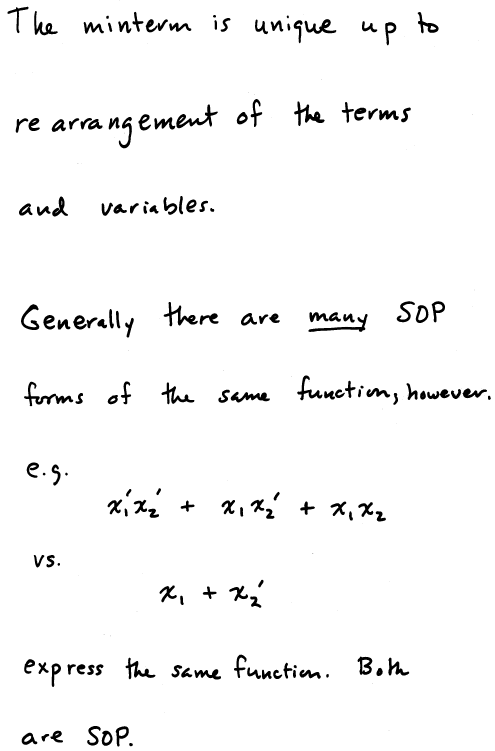 The minterm is unique up to
rearrangement of the terms
and variables.
Generally there are many SOP
forms of the same function, however.
e.g.
x₁'x₂' + x₁x₂' + x₁x₂
vs.
x₁ + x₂'
express the same function. Both
are SOP.